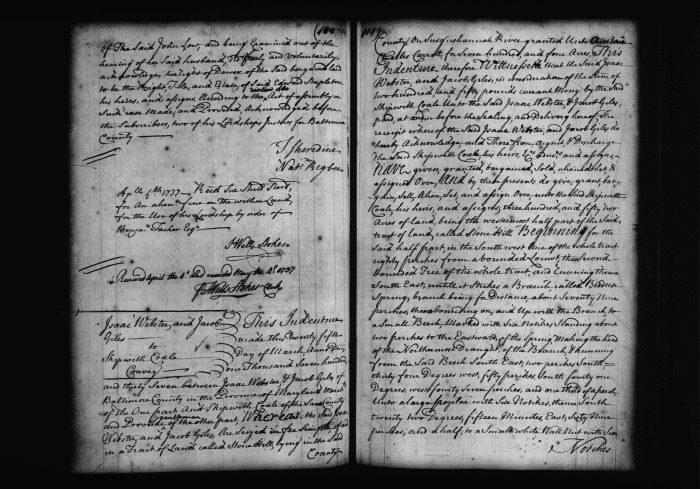 of the Said John Low, and being Examined out of the
hearing of her said husband, freely and voluntarily
acknowledges her right of Dower of the Said bargained Land
to be the Right, Title, and Estate, of Said Edward Stapleton
his heirs, and assigns, According to the Act of assembly in
Such case Made, and Provided, Acknowledged before
the Subscribers, two of his Lordships Justices for Baltimore
County
T Sheredine
Nat: Rigbee
Aple 4th 1737 Recd Six Shills
for an alienation fine on the within Land,
for the Use of his Lordship by order of
Benja Tasker Esqr
J Wells Stokes
Received April the 4th and recorded May the 4th 1737
J Wells Stokes Clk
Isaac Webster, and Jacob
Giles
to
Skipwith Coale
Convey
This Indenture
made this Twenty fifth
Day of March Anno Dom
One Thousand Seven hundred
and thirty Seven between Isaac Webster, & Jacob Giles, of
Baltimore County in the Province of Maryland
of the One part, and Skipwith Coale of the Same County
and Province of the other part, Whereas the Said Isaac
Webster, and Jacob Giles, Are Seized in fee Simple of and
in a Tract of Land called Stone Hill, lying in the Said
County
County On Susquehannah River granted Unto
Charles Carroll, for Seven hundred, and four Acres, This
Indenture, therefore Witnesseth that the Said Isaac
Webster, and Jacob Giles, in consideration of the Sum of
two hundred, and fifty pounds currant Mony, by the Said
Skipwith Coale Unto the Said Isaac Webster, & Jacob Giles,
paid, at, or before the Sealing, and Delivery hereof, The
receipt whereof the Said Isaac Webster, and Jacob Giles do
hereby Acknowledge, and Thereof Acquit, & Discharge
the Said Skipwith Coale, his heirs, and assigns,
Have given, granted, bargained, Sold, aliened, Set, &
assigned Over, And by these presents do give, grant, bar-
gain, Sell, Alien, Set, and assign over, unto the Said Skipwith
Coale, his heirs, and assigns, three hundred, and fifty two
Acres of Land, being the westermost half part of the Said
tract of land, called Stone Hill Beginning for the
Said half part, in the South west line of the whole tract
eighty perches from a bounded Locust, the Second
bounded Tree of the whole tract, and running thence
South East, until it Strikes a Branch, called
Spring, branch being for Distance about Seventy Nine
perches, thence bounding on, and Up with the Branch to
a Small Beech, Marked with Six Notches Standing about
two perches to the Eastward, of the Spring Making the head
of the Northermost Draught, of the Branch, & running
from the Said Beech South East, two perches South
thirty four Degrees west, fifty perches South fourty one
Degrees, west fourty Seven perches, and one third of a perch
Unto a large poplar with Six Notches, thence South
twenty two Degrees, fifteen Minutes, East, Sixty Nine
perches, and a half, to a Small white Wall Nut with Six
Notches